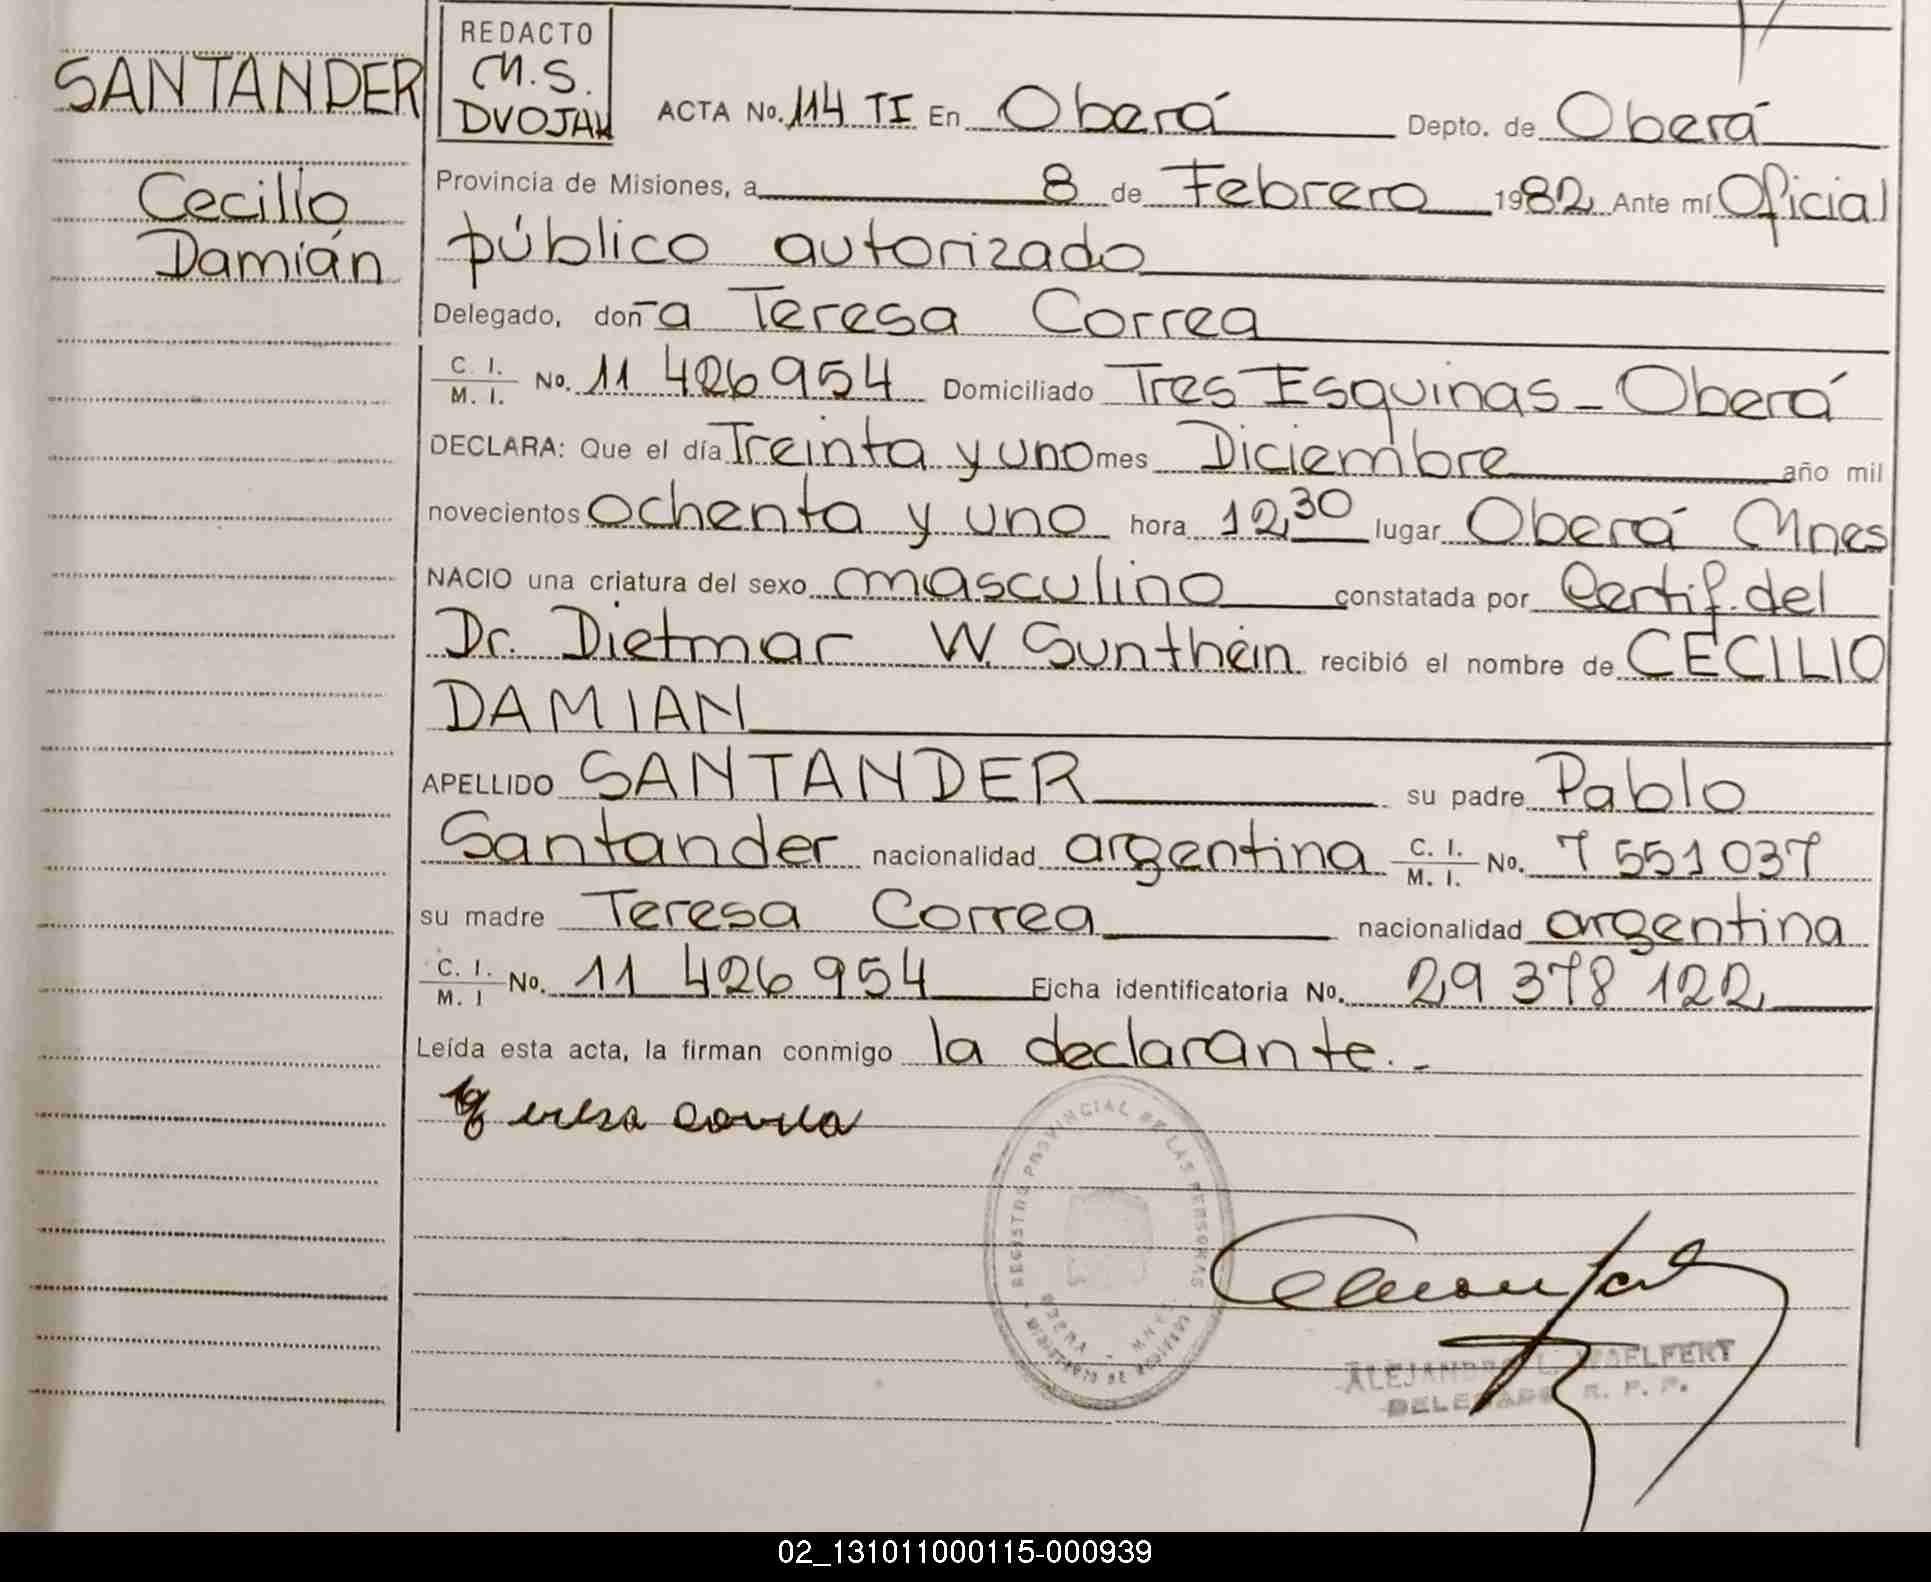 SANTANDER
Cecilio
Damián
REDACTO
M.S.
DVOJAK
ACTA No. 114 TI En Oberá Depto. de Oberá
Provincia de Misiones, a 8 de Febrero 1982 Ante mí Oficial
público autorizado
Delegado, doña Teresa Correa
C. I. / M. I. No. 11 426954 Domiciliado Tres Esquinas - Oberá
DECLARA: Que el día Treinta y uno mes Diciembre año mil
novecientos ochenta y uno hora 12,30 lugar Oberá Mnes
NACIO una criatura del sexo masculino constatada por Certif. del
Dr. Dietmar W. Sunthein recibió el nombre de CECILIO
DAMIAN
APELLIDO SANTANDER su padre Pablo
Santander nacionalidad argentina C. I. / M. I. No. 7 551 037
su madre Teresa Correa nacionalidad argentina
C. I. / M. I No. 11 426 954 Ficha identificatoria No. 29 378 122
Leída esta acta, la firman conmigo la declarante.-
Teresa Correa
REGISTRO PROVINCIAL DE LAS PERSONAS
OBERA - MNES.
MINISTERIO DE
ALEJANDRO L. WOELFERT
DELEGADO R. P. P.
02_131011000115-000939